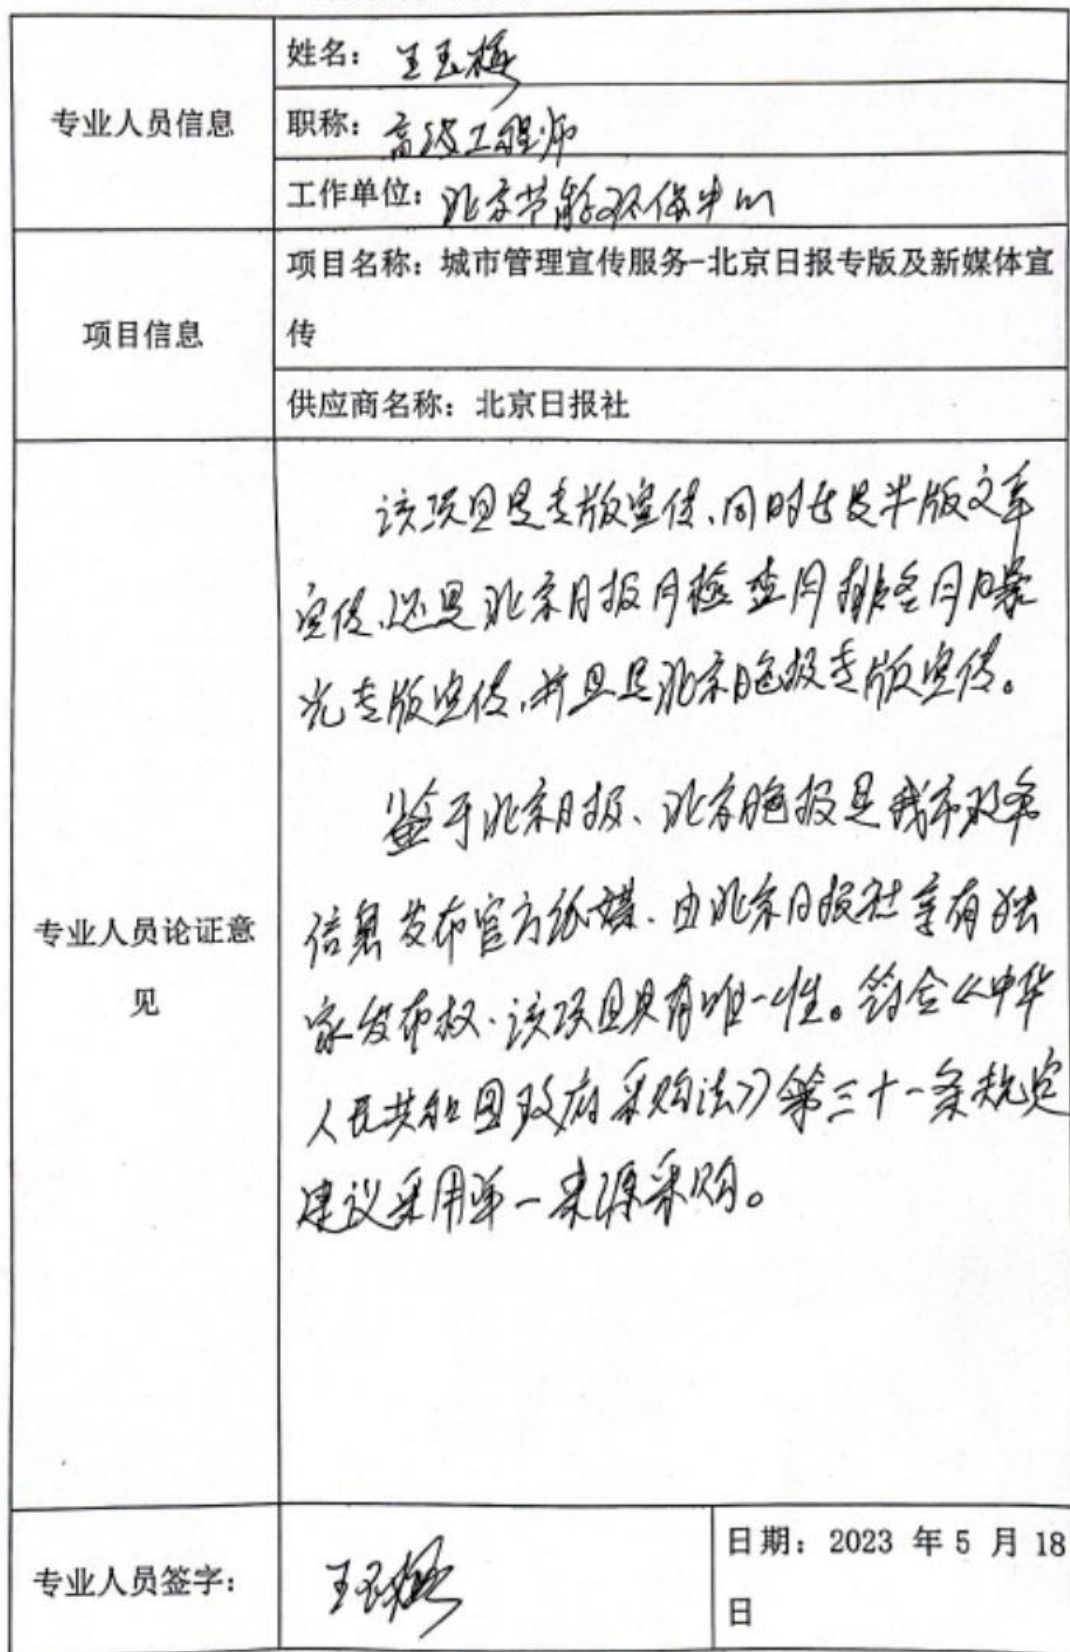 专业人员信息
姓名：王玉梅
职称：高级工程师
工作单位：北京节能环保中心
项目信息
项目名称：城市管理宣传服务-北京日报专版及新媒体宣
传
供应商名称：北京日报社
专业人员论证意
见
该项目是专版宣传、同时也是半版文章
宣传、还是北京日报月检查月排名月曝
光专版宣传，并且是北京晚报专版宣传。
鉴于北京日报、北京晚报是我市政务
信息发布官方纸媒、由北京日报社享有独
家发布权、该项目具有唯一性。符合《中华
人民共和国政府采购法》第三十一条规定
建议采用单一来源采购。
专业人员签字：
王玉梅
日期：2023 年 5 月 18
日